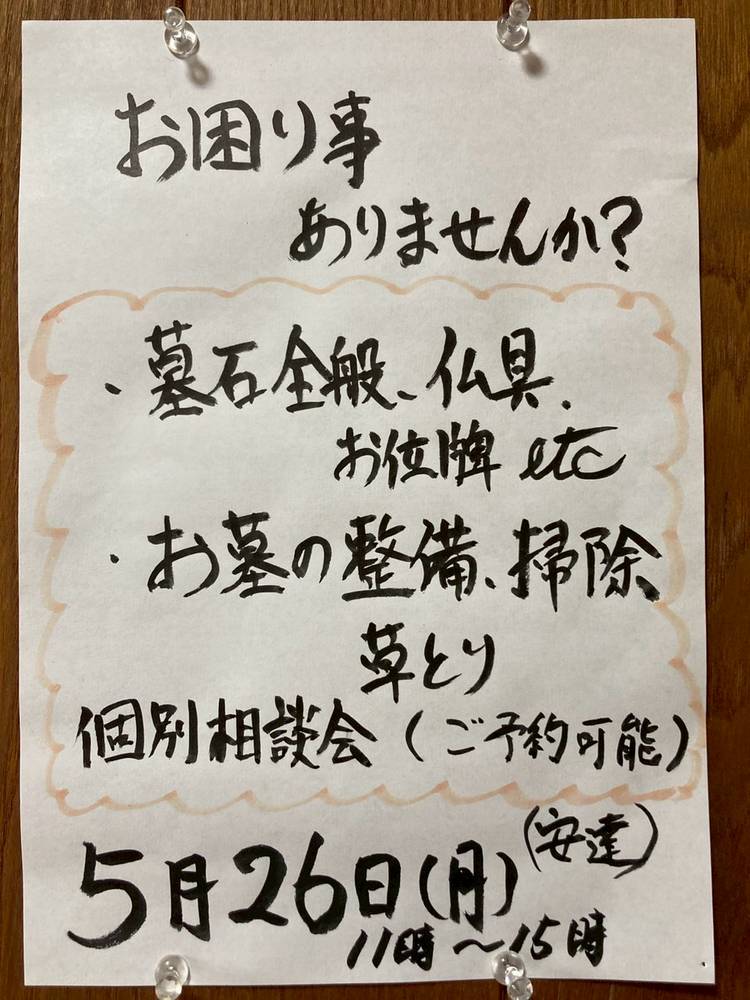 お困り事
ありませんか?
・墓石全般、仏具、
お位牌 etc
・お墓の整備、掃除
草とり
個別相談会（ご予約可能）
(安達)
5月26日(月)
11時～15時